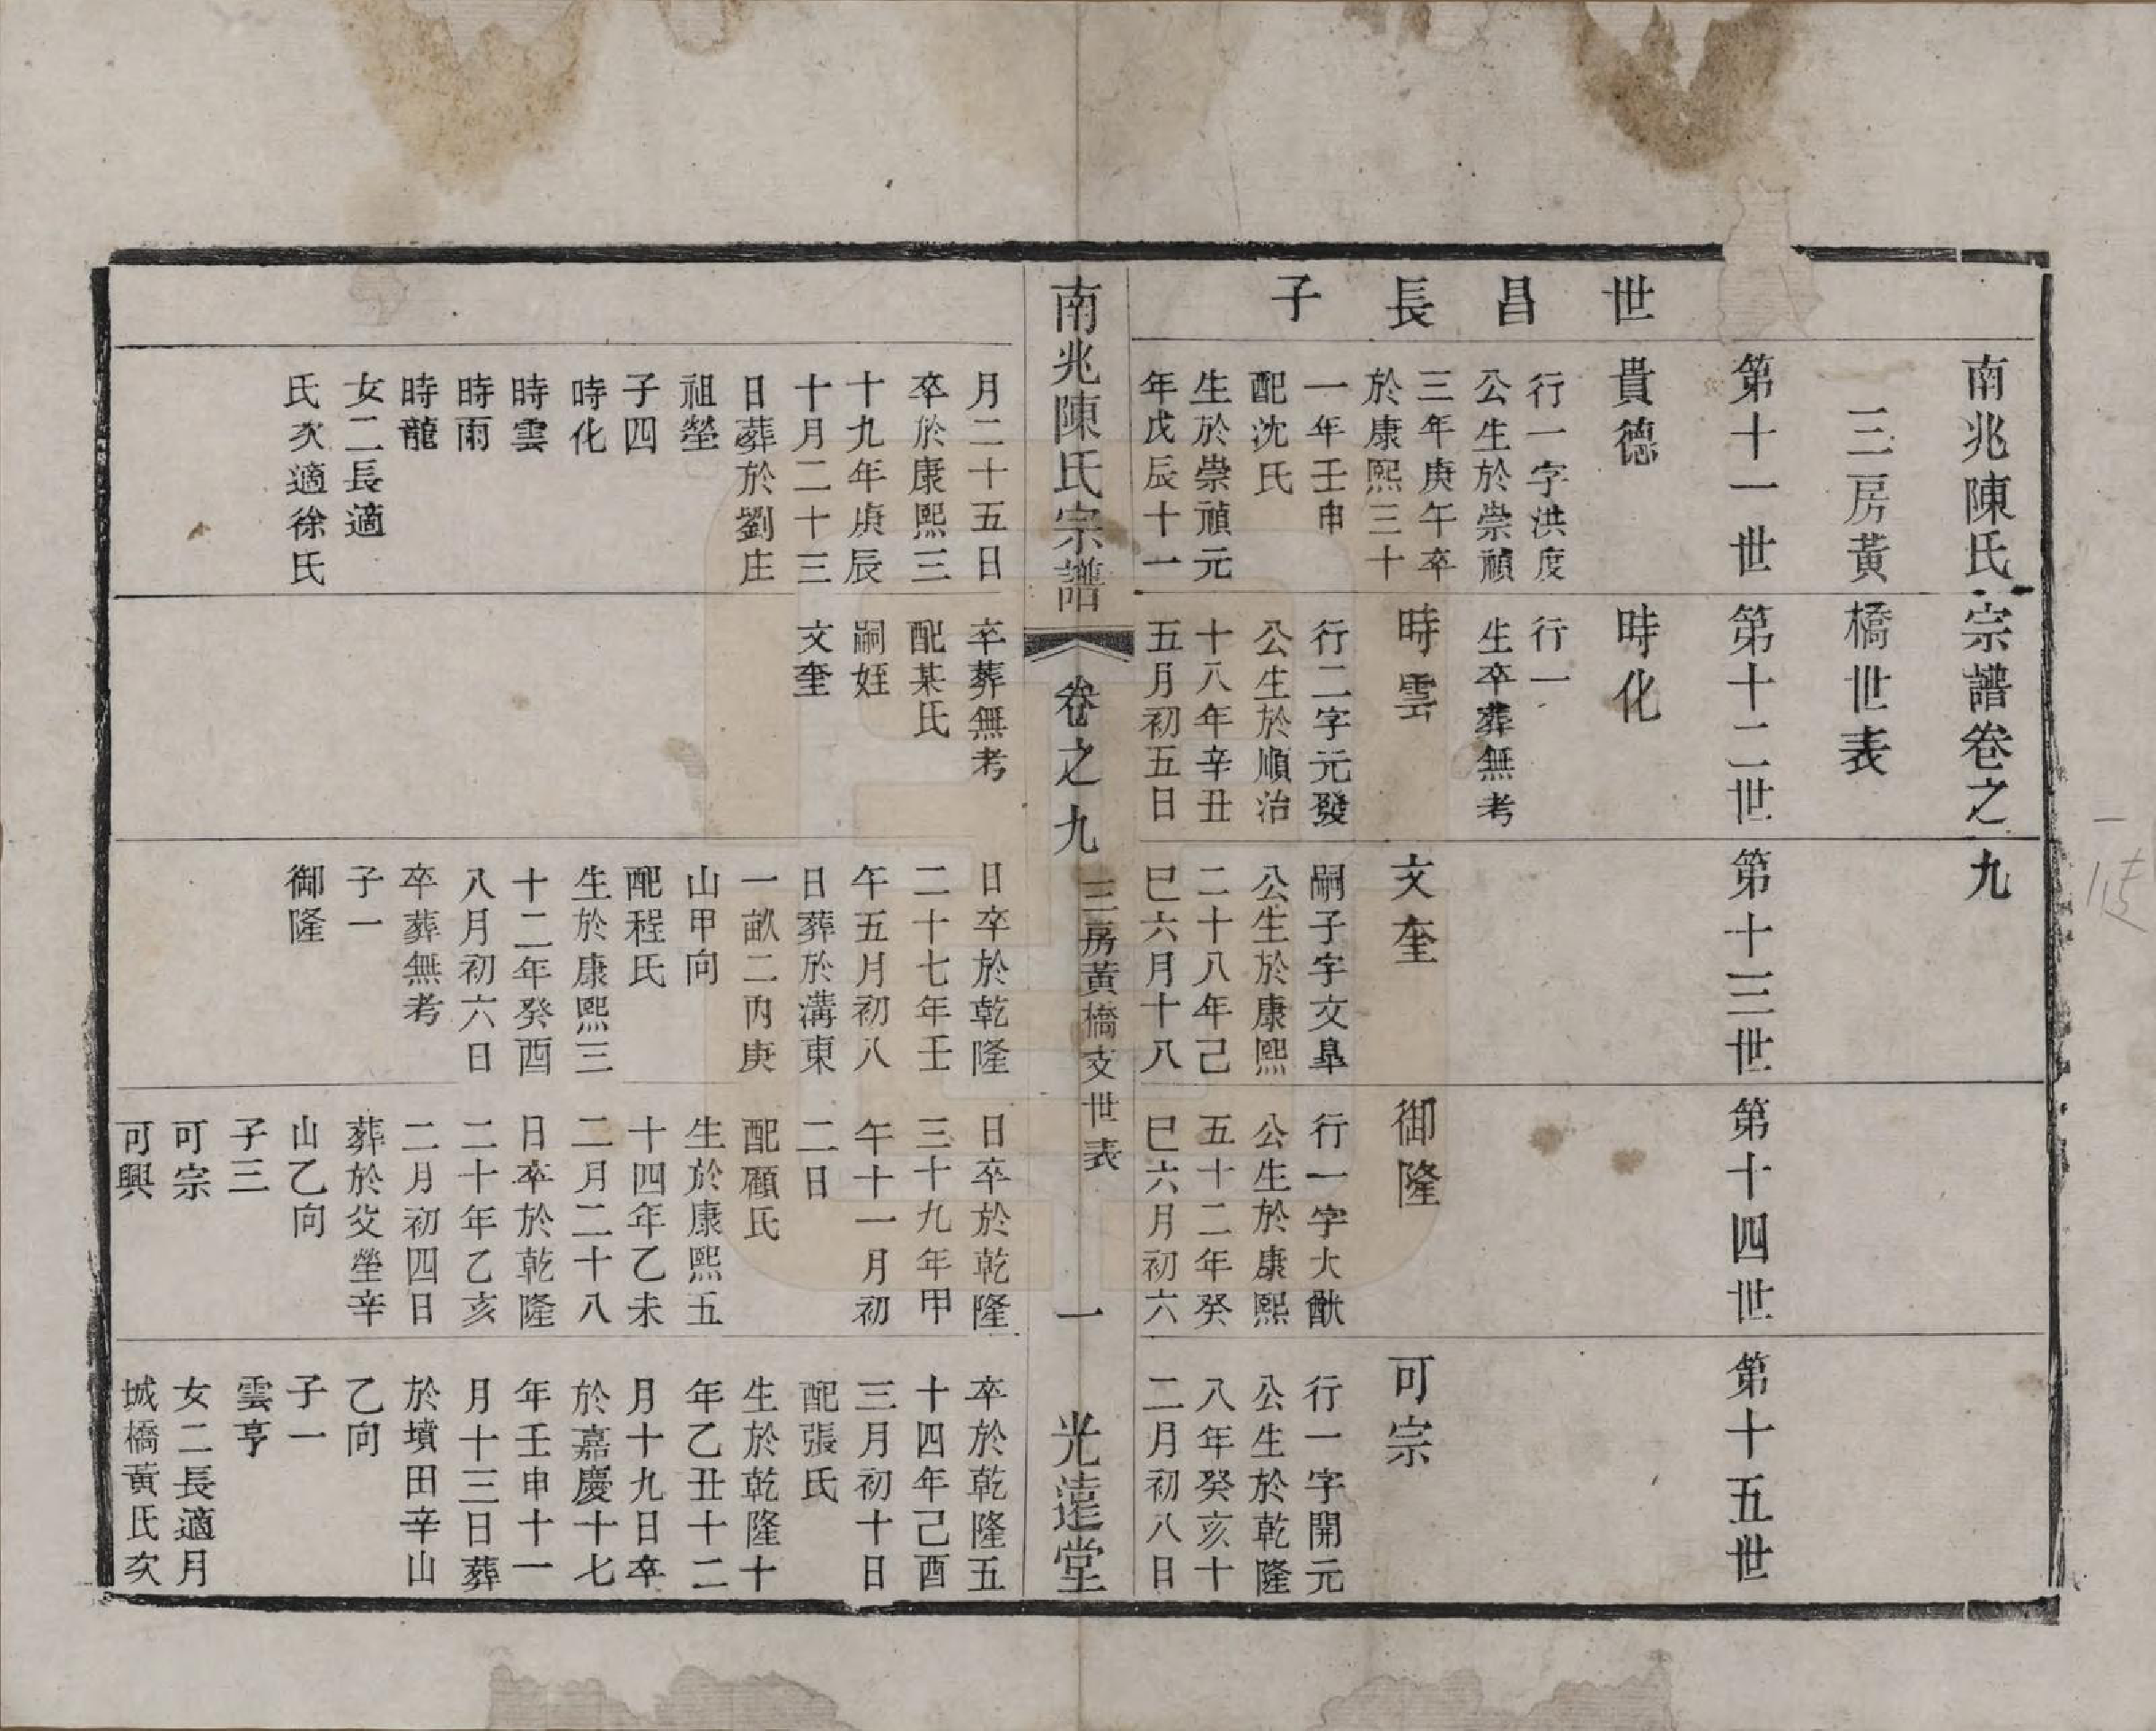 南兆陳氏宗譜卷之九
三房黃橋世表
世昌長子
第十一世
貴德
行一字洪度
公生於崇禎
三年庚午卒
於康熙三十
一年壬申
配沈氏
生於崇禎元
年戊辰十一
月二十五日
卒於康熙三
十九年庚辰
十月二十三
日葬於劉庄
祖塋
子四
時化
時雲
時雨
時龍
女二長適
氏次適徐氏
第十二世
時化
行一
生卒葬無考
時雲
行二字元發
公生於順治
十八年辛丑
五月初五日
卒葬無考
配某氏
嗣姪
文奎
第十三世
文奎
嗣子字文阜
公生於康熙
二十八年己
巳六月十八
日卒於乾隆
二十七年壬
午五月初八
日葬於溝東
一畝二丙庚
山甲向
配程氏
生於康熙三
十二年癸酉
八月初六日
卒葬無考
子一
御隆
第十四世
御隆
行一字大猷
公生於康熙
五十二年癸
巳六月初六
日卒於乾隆
三十九年甲
午十一月初
二日
配顧氏
生於康熙五
十四年乙未
二月二十八
日卒於乾隆
二十年乙亥
二月初四日
葬於父塋辛
山乙向
子三
可宗
可興
第十五世
可宗
行一字開元
公生於乾隆
八年癸亥十
二月初八日
卒於乾隆五
十四年己酉
三月初十日
配張氏
生於乾隆十
年乙丑十二
月十九日卒
於嘉慶十七
年壬申十一
月十三日葬
於墳田辛山
乙向
子一
雲亨
女二長適月
城橋黃氏次
南兆陳氏宗譜
卷之九
三房黃橋支世表
一
光遠堂